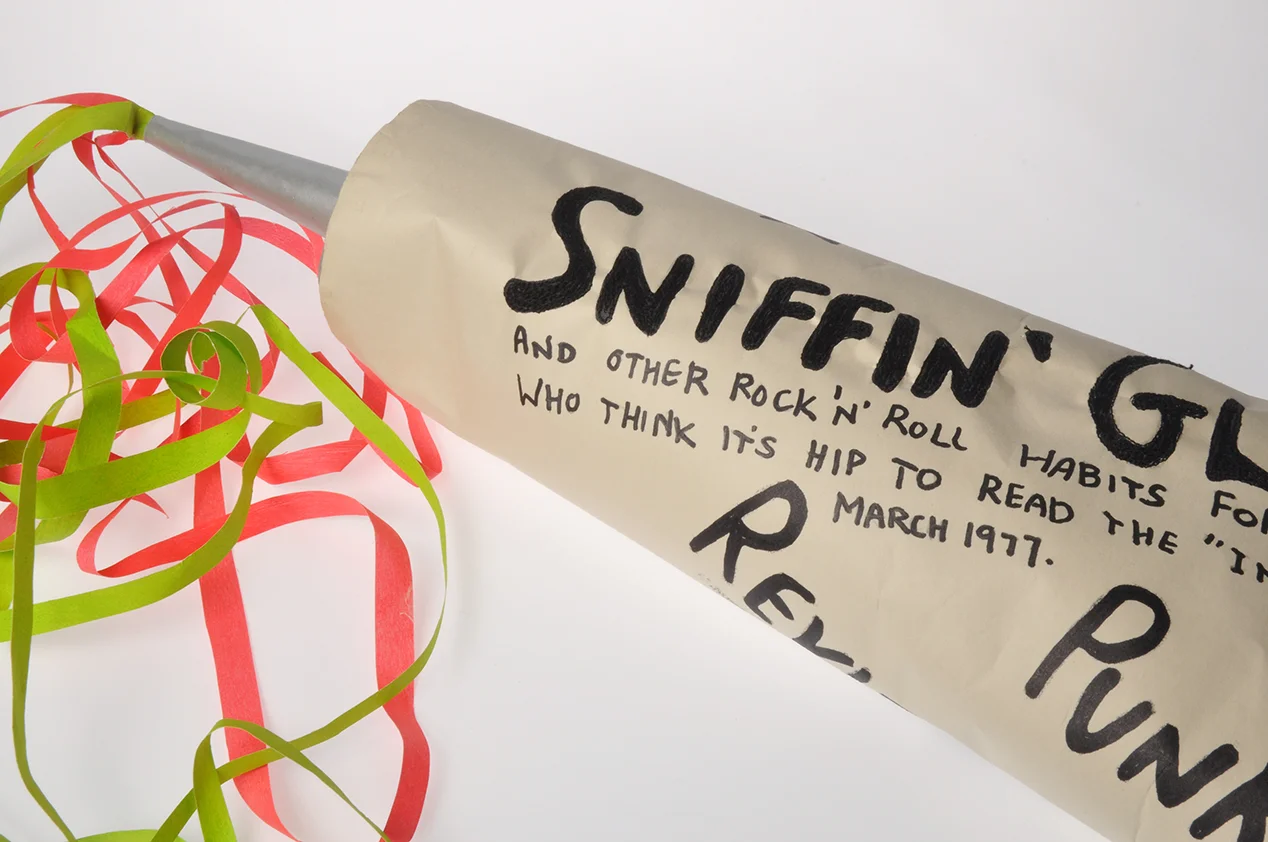 SNIFFIN' GL
AND OTHER ROCK 'N' ROLL HABITS FOR
WHO THINK IT'S HIP TO READ THE "IN
MARCH 1977.
REV
PUNK